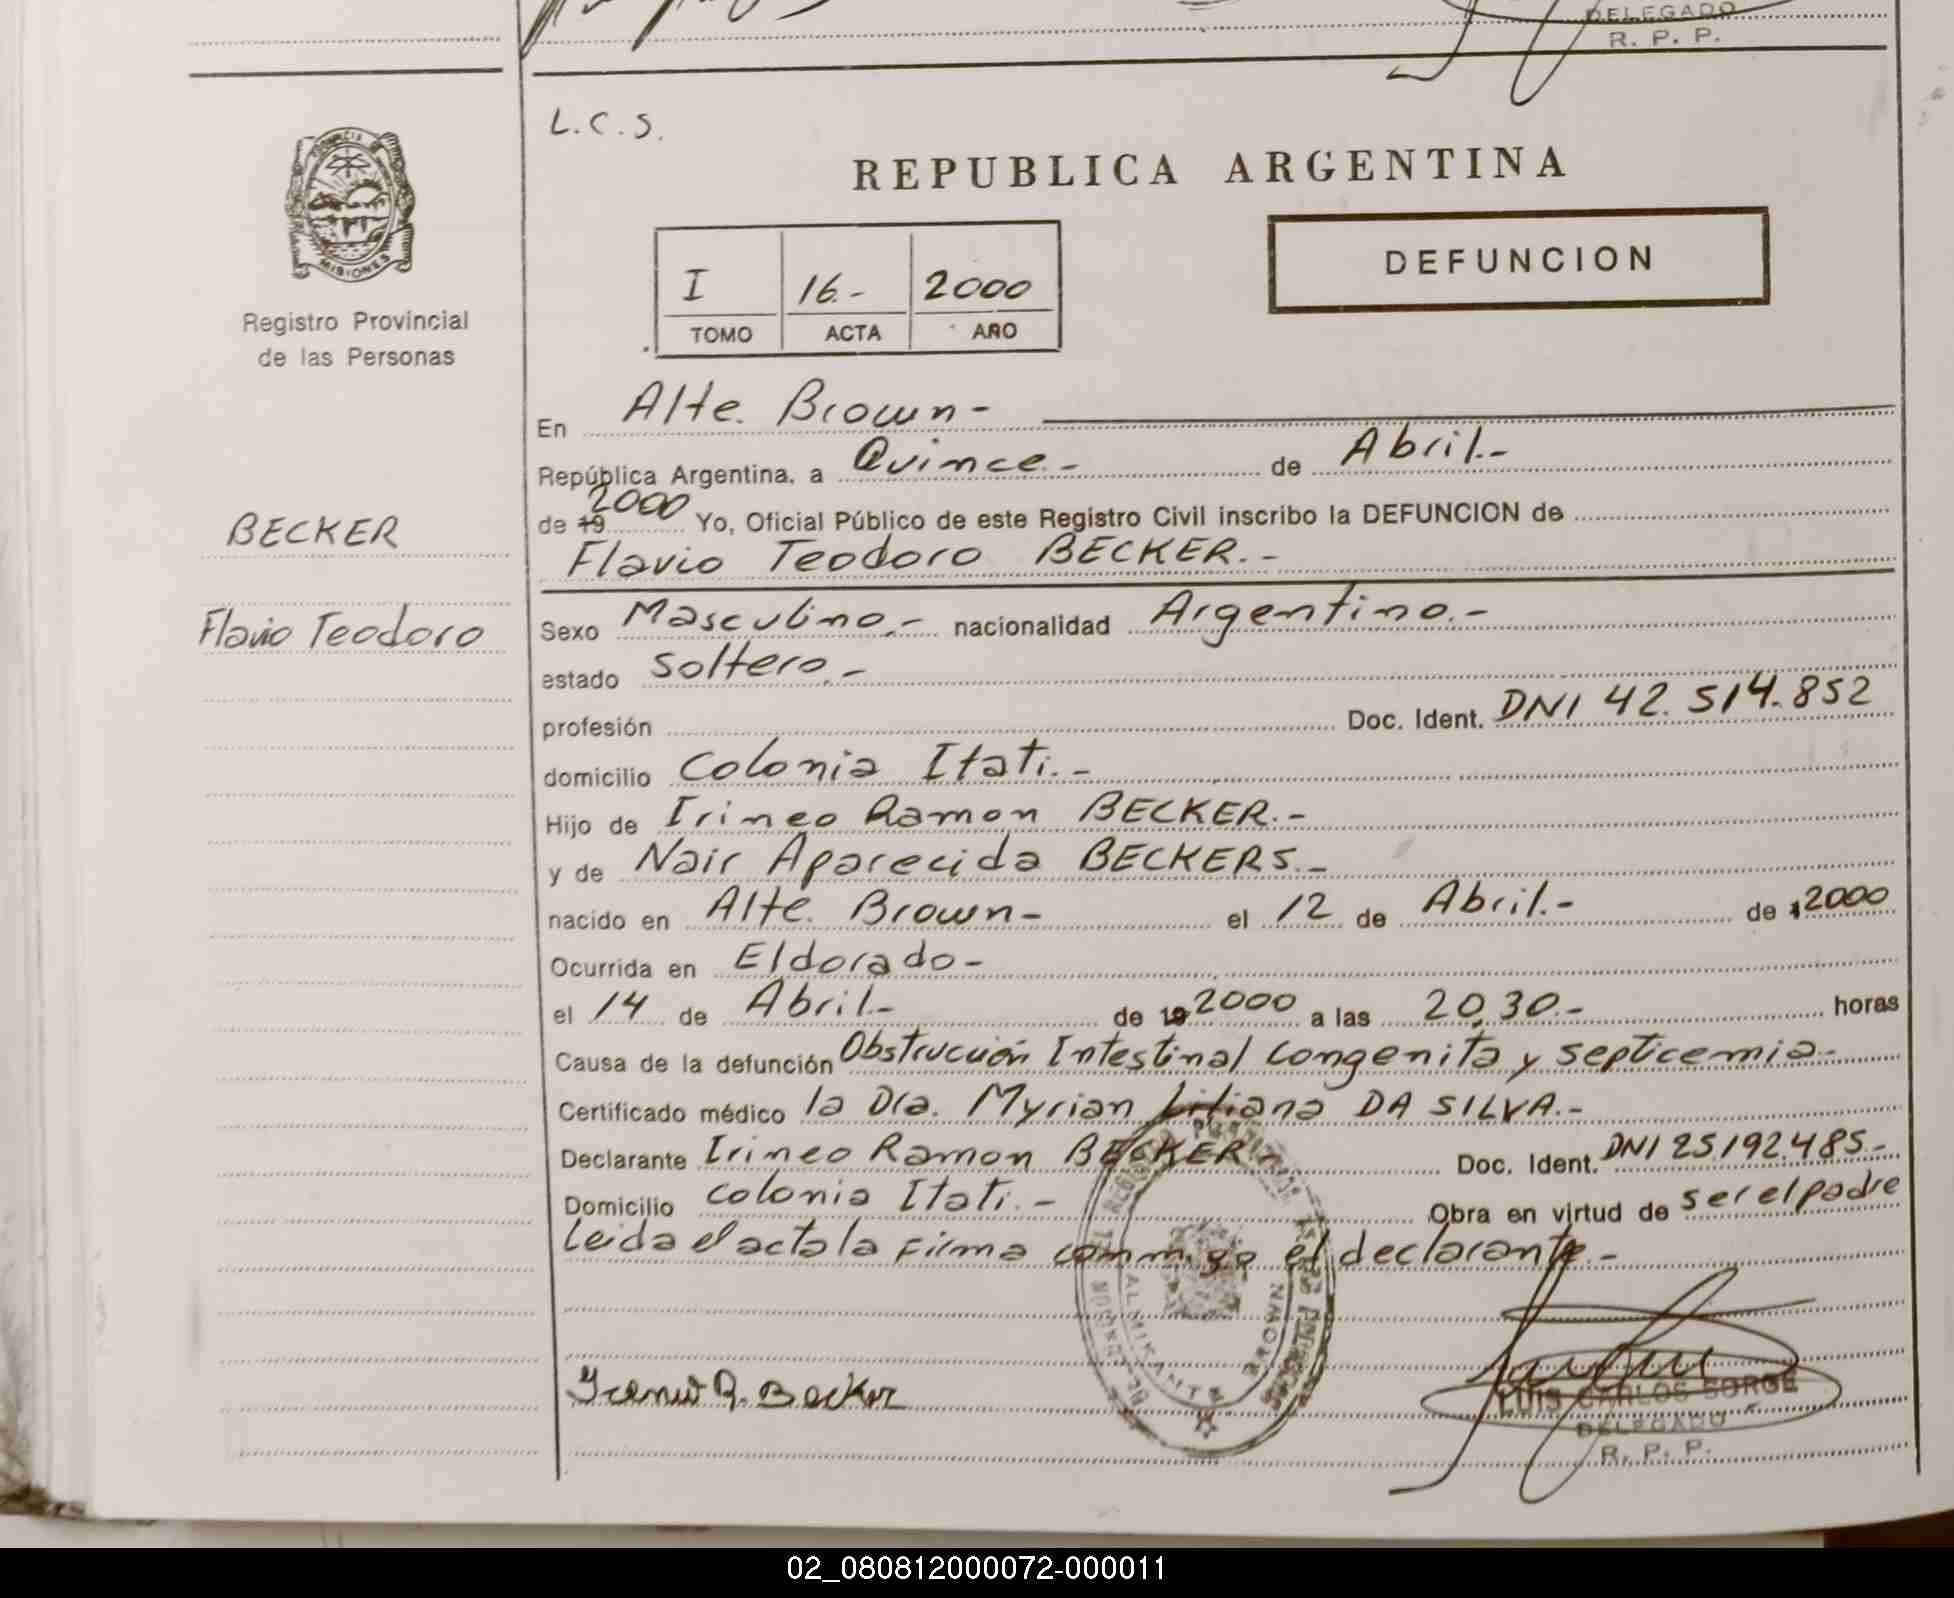 DELEGADO
R. P. P.
L.C.S.
REPUBLICA ARGENTINA
PROVINCIA DE
MISIONES
Registro Provincial
de las Personas
I 16.- 2000
TOMO ACTA AÑO
DEFUNCION
En Alte. Brown-
República Argentina, a Quince.- de Abril.-
de 19 2000 Yo, Oficial Público de este Registro Civil inscribo la DEFUNCION de
Flavio Teodoro BECKER.-
BECKER
Flavio Teodoro
Sexo Masculino.- nacionalidad Argentino.-
estado soltero.-
profesión Doc. Ident. DNI 42.514.852
domicilio Colonia Itati.-
Hijo de Irineo Ramon BECKER.-
y de Nair Aparecida BECKERS.-
nacido en Alte. Brown- el 12 de Abril.- de 2000
Ocurrida en Eldorado-
el 14 de Abril.- de 19 2000 a las 20,30.- horas
Causa de la defunción Obstrucción Intestinal Congenita y septicemia.-
Certificado médico la Dra. Myrian Liliana DA SILVA.-
Declarante Irineo Ramon BECKER- Doc. Ident. DNI 25.192.485.-
Domicilio colonia Itati.- Obra en virtud de ser el padre
Leida el acta la firma conmigo el declarante.-
ALMIRANTE
R. Becker
LUIS CARLOS SORGE
DELEGADO
R. P. P.
02_080812000072-000011